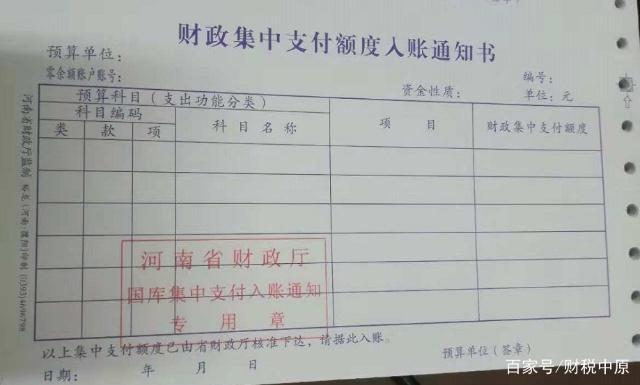 财政集中支付额度入账通知书
预算单位：
编号：
零余额账户账号：
资金性质：
单位：元
预算科目（支出功能分类）
项 目
财政集中支付额度
科目编码
科目名称
类
款
项
河南省财政厅
国库集中支付入账通知
专用章
以上集中支付额度已由省财政厅核准下达，请据此入账。
预算单位（签章）
日期： 年 月 日
河南省财政厅监制
(河南·濮阳)印制 (0393)4696798
百家号/财税中原